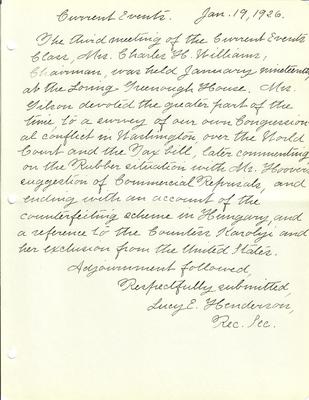 Current Events. Jan. 19, 1926.
The third meeting of the Current Events
Class, Mrs. Charles H. Williams,
Chairman, was held January nineteenth
at the Loring Greenough House. Mrs.
Gilson devoted the greater part of the
time to a survey of our own Congression
al conflict in Washington over the World
Court and the Tax bill, later commenting
on the Rubber situation with Mr. Hoover's
suggestion of Commercial Reprisals, and
ending with an account of the
counterfeiting scheme in Hungary and
a reference to the Countess Karolyi and
her exclusion from the United States.
Adjournment followed,
Respectfully submitted,
Lucy E. Henderson,
Rec. Sec.